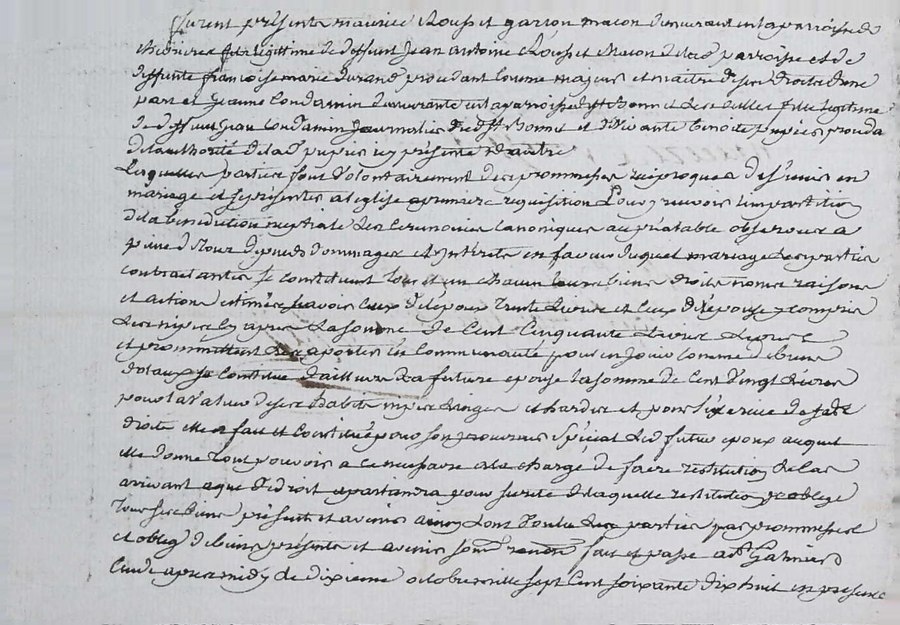 furent présents maurice Rousset garson macon demeurant en la parroisse de
fils legittime de deffunt Jean antoine Rousset macon de lad parroisse et de
deffunte francoise marie durand procedant comme majeur et maitre de ses droits d'une
part et Jeanne Condamin demeurante en la parroisse de st Bonnet Les oulles fille legitime
de deffunt Jean Condamin Journalier dud st Bonnet et vivante Benoite procedant
de lauthorité de lad icy présente d'autre
Lesquelles parties sous volontairement des promesses reciproques de s'unir en
mariage et se présenter a leglise a premiere requisition Pour y recevoir limpartition
de la benediction nuptiale Les ceremonies Canoniques au préalable observées a
peine de tous depends dommages et interets en faveur duquel mariage Lesd parties
contractantes se constituent tous et un chacun leurs biens droits noms raisons
et actions estimés savoir ceux de l'époux trente Livres et ceux de l'Epouse y compris
cy apres La somme de Cent Cinquante Livres
et promettent les aporter en Communauté pour en Jouir comme de biens
dotaux se constitue d'ailleurs La future epouse la somme de Cent vingt Livres
pour la valeur de ses habits linges et hardes et pour l'exercice de sesd
droits elle a fait et Constitué pour son procureur spécial Led futur epoux auquel
elle donne tout pouvoir a ce necessaire a la charge de faire restitution de la
arrivant a que de droit apartiendra pour sureté de laquelle restitution il oblige
tous ses biens présents et avenir ainsy Lont voulu Les parties par promesses
et oblig de biens présents et avenir soum renon fait et passé a st Galmier
Etude apres midy le dixieme octobre mille sept Cent soixante dix huit en presence